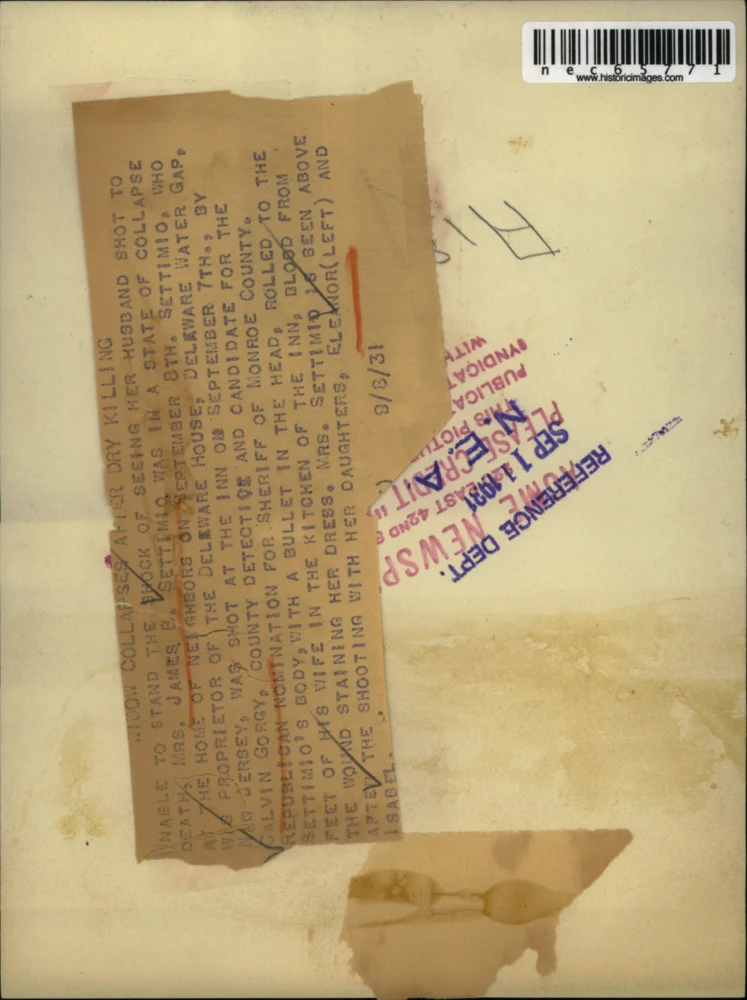 WIDOW COLLAPSES AFTER DRY KILLING
UNABLE TO STAND THE SHOCK OF SEEING HER HUSBAND SHOT TO
DEATH, MRS. JAMES B. SETTIMIO WAS IN A STATE OF COLLAPSE
AT THE HOME OF NEIGHBORS ON SEPTEMBER 8TH. SETTIMIO, WHO
WAS PROPRIETOR OF THE DELAWARE HOUSE, DELAWARE WATER GAP,
NEW JERSEY, WAS SHOT AT THE INN ON SEPTEMBER 7TH., BY
CALVIN GORGY, COUNTY DETECTIVE AND CANDIDATE FOR THE
REPUBLICAN NOMINATION FOR SHERIFF OF MONROE COUNTY.
SETTIMIO'S BODY, WITH A BULLET IN THE HEAD, ROLLED TO THE
FEET OF HIS WIFE IN THE KITCHEN OF THE INN, BLOOD FROM
THE WOUND STAINING HER DRESS. MRS. SETTIMIO IS SEEN ABOVE
AFTER THE SHOOTING WITH HER DAUGHTERS, ELEANOR(LEFT) AND
ISABEL.
9/8/31
nec65771
www.historicimages.com
REFERENCE DEPT.
SEP 11 1931
N. E. A.
NEWSP
EAST 42ND S
PLEASE CREDIT
THIS PICTU
PUBLICAT
SYNDICAT
WITH